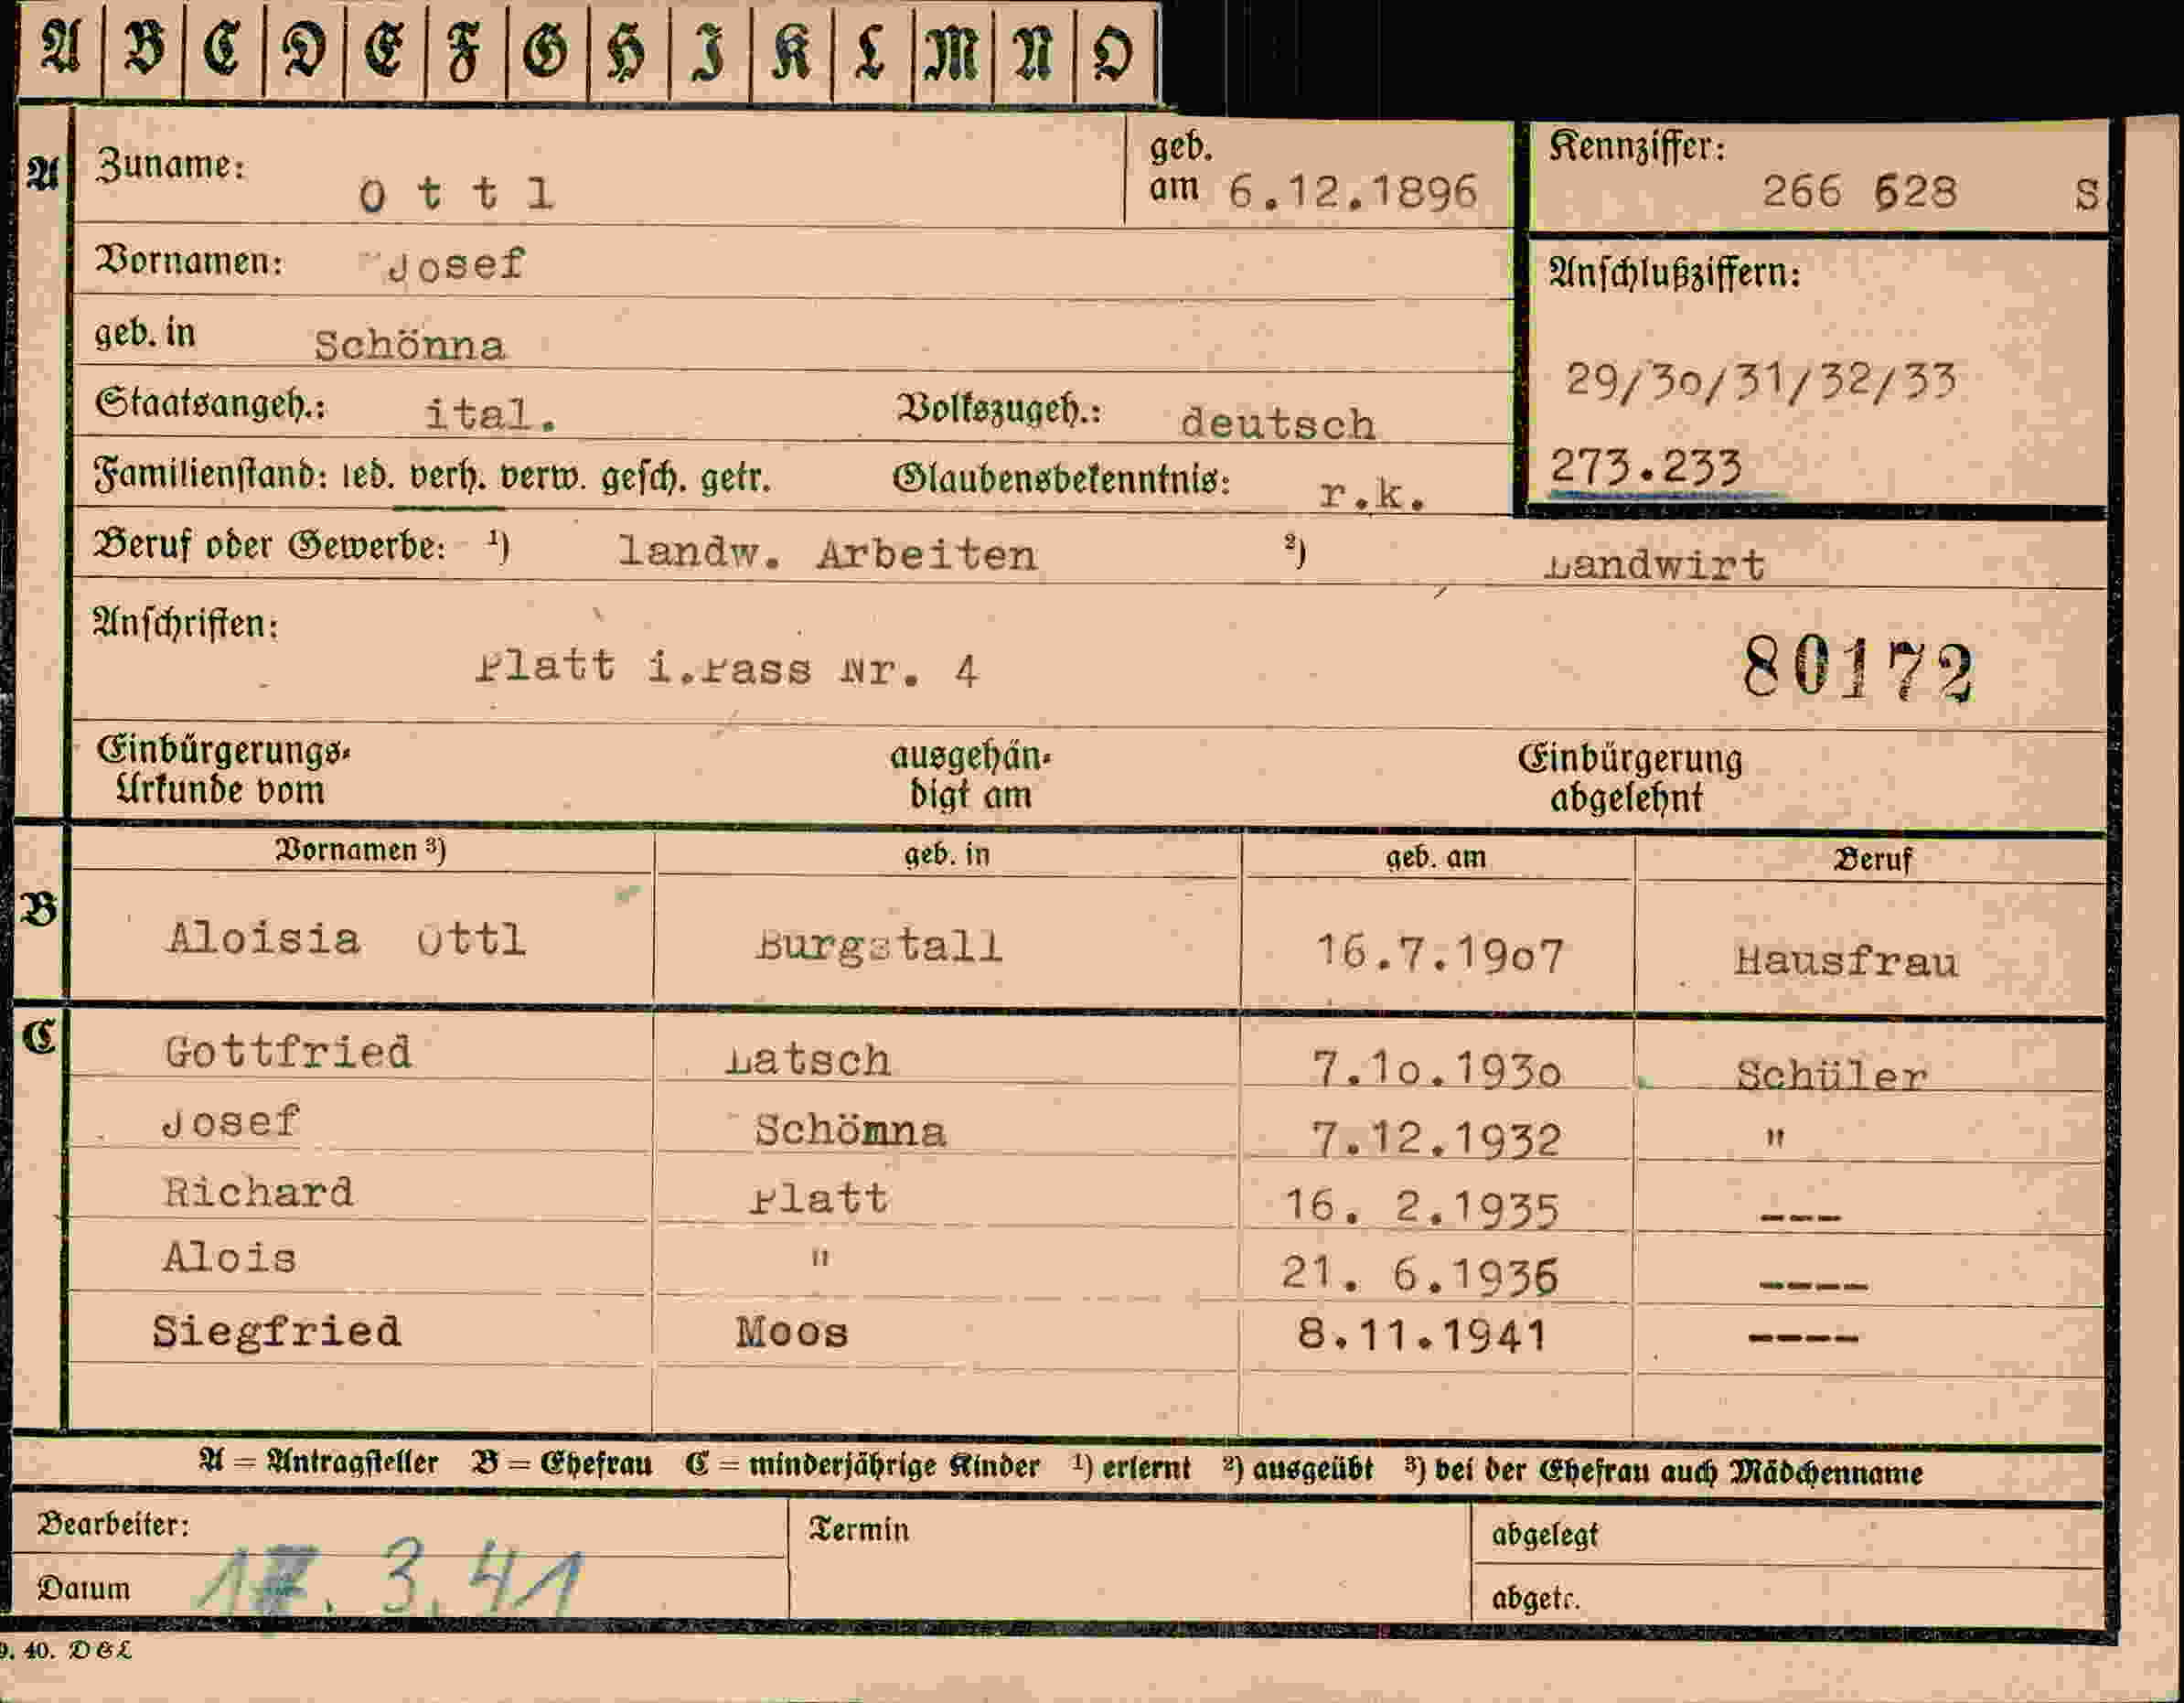 A B C D E F G H I K L M N O
A Zuname: O t t l geb. am 6.12.1896 Kennziffer: 266 628 S
Vornamen: Josef Anschlußziffern:
geb. in Schönna
29/30/31/32/33
Staatsangeh.: ital. Volkszugeh.: deutsch
273.233
Familienstand: led. verh. verw. gesch. getr. Glaubensbekenntnis: r.k.
Beruf oder Gewerbe: ¹) landw. Arbeiten ²) Landwirt
Anschriften:
Platt i.Pass Nr. 4 80172
Einbürgerungs- ausgehän- Einbürgerung
Urkunde vom digt am abgelehnt
Vornamen ³) geb. in geb. am Beruf
B Aloisia Ottl Burgstall 16.7.1907 Hausfrau
C Gottfried Latsch 7.10.1930 Schüler
Josef Schönna 7.12.1932 "
Richard Platt 16. 2.1935 ---
Alois " 21. 6.1936 ----
Siegfried Moos 8.11.1941 ----
A = Antragsteller B = Ehefrau C = minderjährige Kinder ¹) erlernt ²) ausgeübt ³) bei der Ehefrau auch Mädchenname
Bearbeiter: Termin abgelegt
Datum 3.41 abgetr.
9. 40. DGL